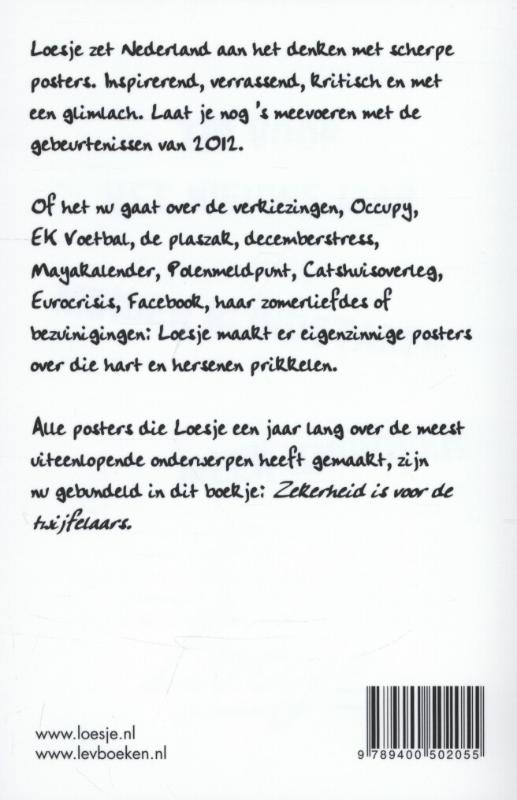 Loesje zet Nederland aan het denken met scherpe
posters. Inspirerend, verrassend, kritisch en met
een glimlach. Laat je nog 's meevoeren met de
gebeurtenissen van 2012.
Of het nu gaat over de verkiezingen, Occupy,
EK Voetbal, de plaszak, decemberstress,
Mayakalender, Polenmeldpunt, Catshuisoverleg,
Eurocrisis, Facebook, haar zomerliefdes of
bezuinigingen: Loesje maakt er eigenzinnige posters
over die hart en hersenen prikkelen.
Alle posters die Loesje een jaar lang over de meest
uiteenlopende onderwerpen heeft gemaakt, zijn
nu gebundeld in dit boekje: Zekerheid is voor de
twijfelaars.
www.loesje.nl
www.levboeken.nl
9 789400 502055